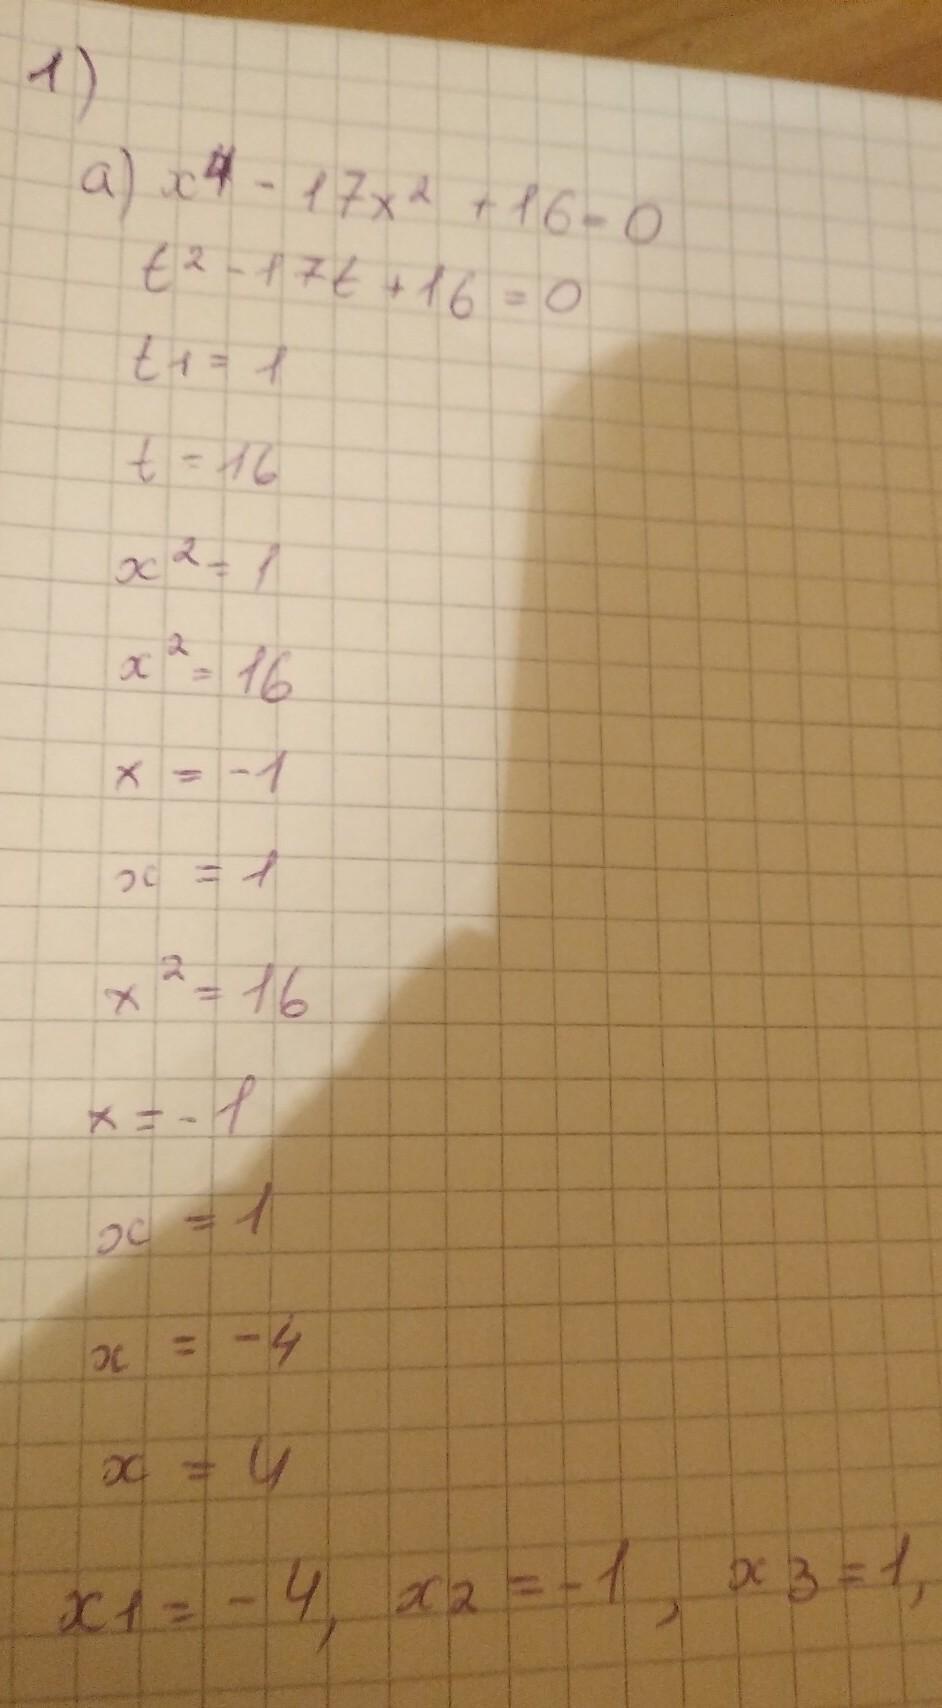 1)
a) x⁴ - 17x² + 16 = 0
t² - 17t + 16 = 0
t1 = 1
t = 16
x² = 1
x² = 16
x = -1
x = 1
x² = 16
x = -1
x = 1
x = -4
x = 4
x1 = -4, x2 = -1, x3 = 1,